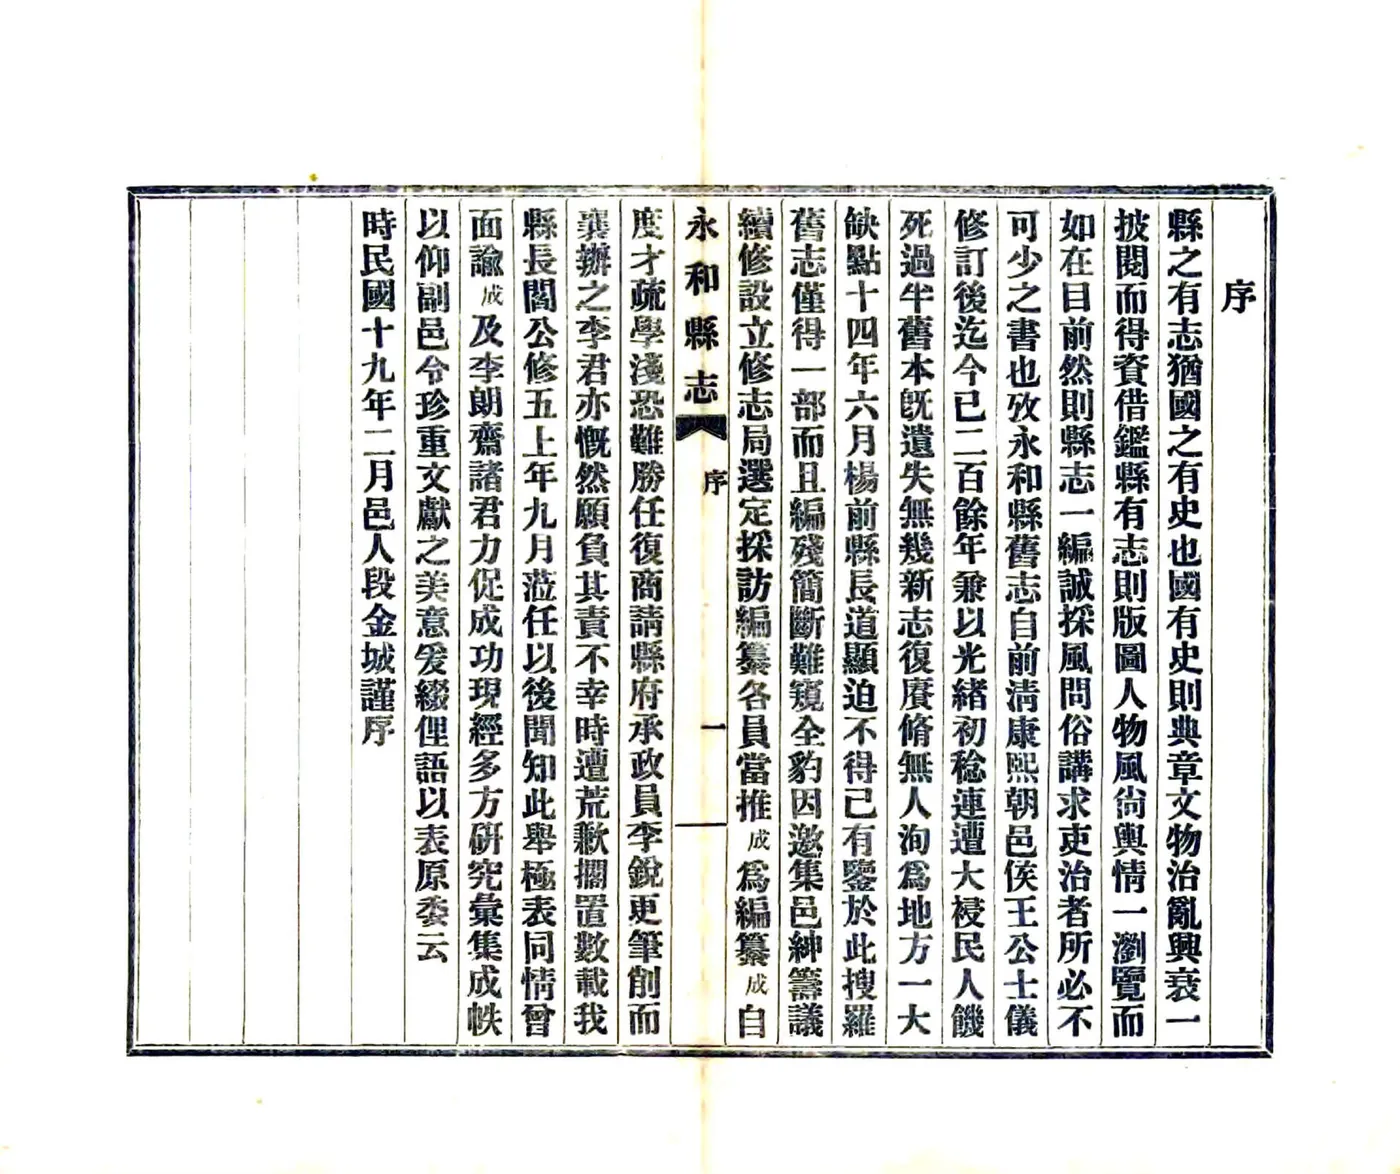 序
縣之有志猶國之有史也國有史則典章文物治亂興衰一
披閱而得資借鑑縣有志則版圖人物風尙輿情一瀏覽而
如在目前然則縣志一編誠採風問俗講求吏治者所必不
可少之書也攷永和縣舊志自前淸康熙朝邑侯王公士儀
修訂後迄今已二百餘年兼以光緒初稔連遭大祲民人饑
死過半舊本旣遺失無幾新志復賡脩無人洵爲地方一大
缺點十四年六月楊前縣長道顯迫不得已有鑒於此搜羅
舊志僅得一部而且編殘簡斷難窺全豹因邀集邑紳籌議
續修設立修志局選定採訪編纂各員當推成爲編纂成自
永和縣志
序
一
度才疏學淺恐難勝任復商請縣府承政員李銳更筆削而
襄辦之李君亦慨然願負其責不幸時遭荒歉擱置數載我
縣長閻公修五上年九月蒞任以後聞知此舉極表同情曾
面諭成及李朗齋諸君力促成功現經多方硏究彙集成帙
以仰副邑令珍重文獻之美意爰綴俚語以表原委云
時民國十九年二月邑人段金城謹序